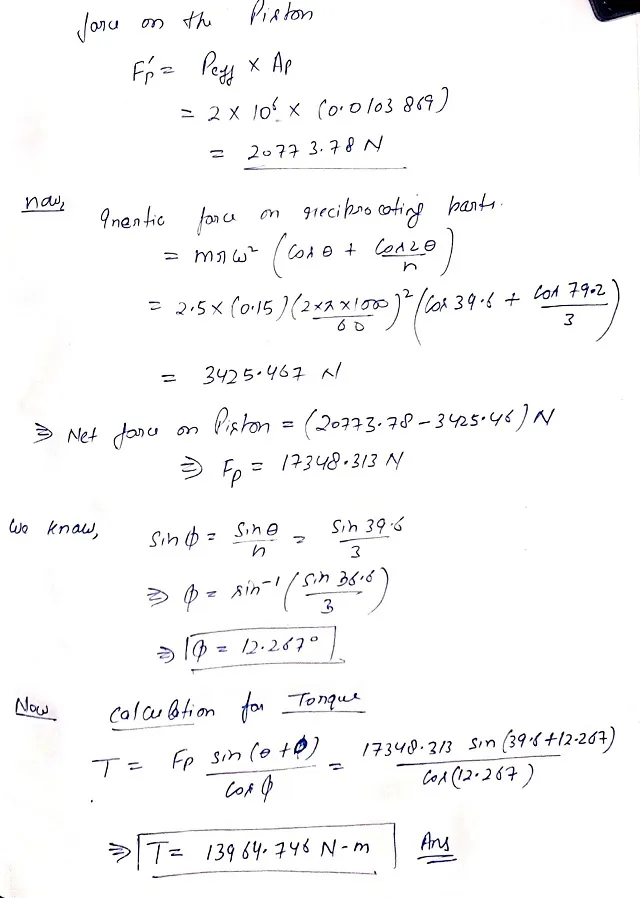 force on the Piston
Fp' = Peff × Ap
= 2 × 10⁶ × (0.0103869)
= 20773.78 N
now, Inertic force on reciprocating parts.
= mrω² (cos θ + cos 2θ / n)
= 2.5 × (0.15) (2×π×1000 / 60)² (cos 39.6 + cos 79.2 / 3)
= 3425.467 N
⇒ Net force on Piston = (20773.78 - 3425.46) N
⇒ Fp = 17348.313 N
We know, sin φ = sin θ / n = sin 39.6 / 3
⇒ φ = sin⁻¹ (sin 36.6 / 3)
⇒ φ = 12.267°
Now Calculation for Torque
T = Fp sin (θ + φ) / cos φ = 17348.313 sin (39.6 + 12.267) / cos (12.267)
⇒ T = 13964.746 N-m Ans